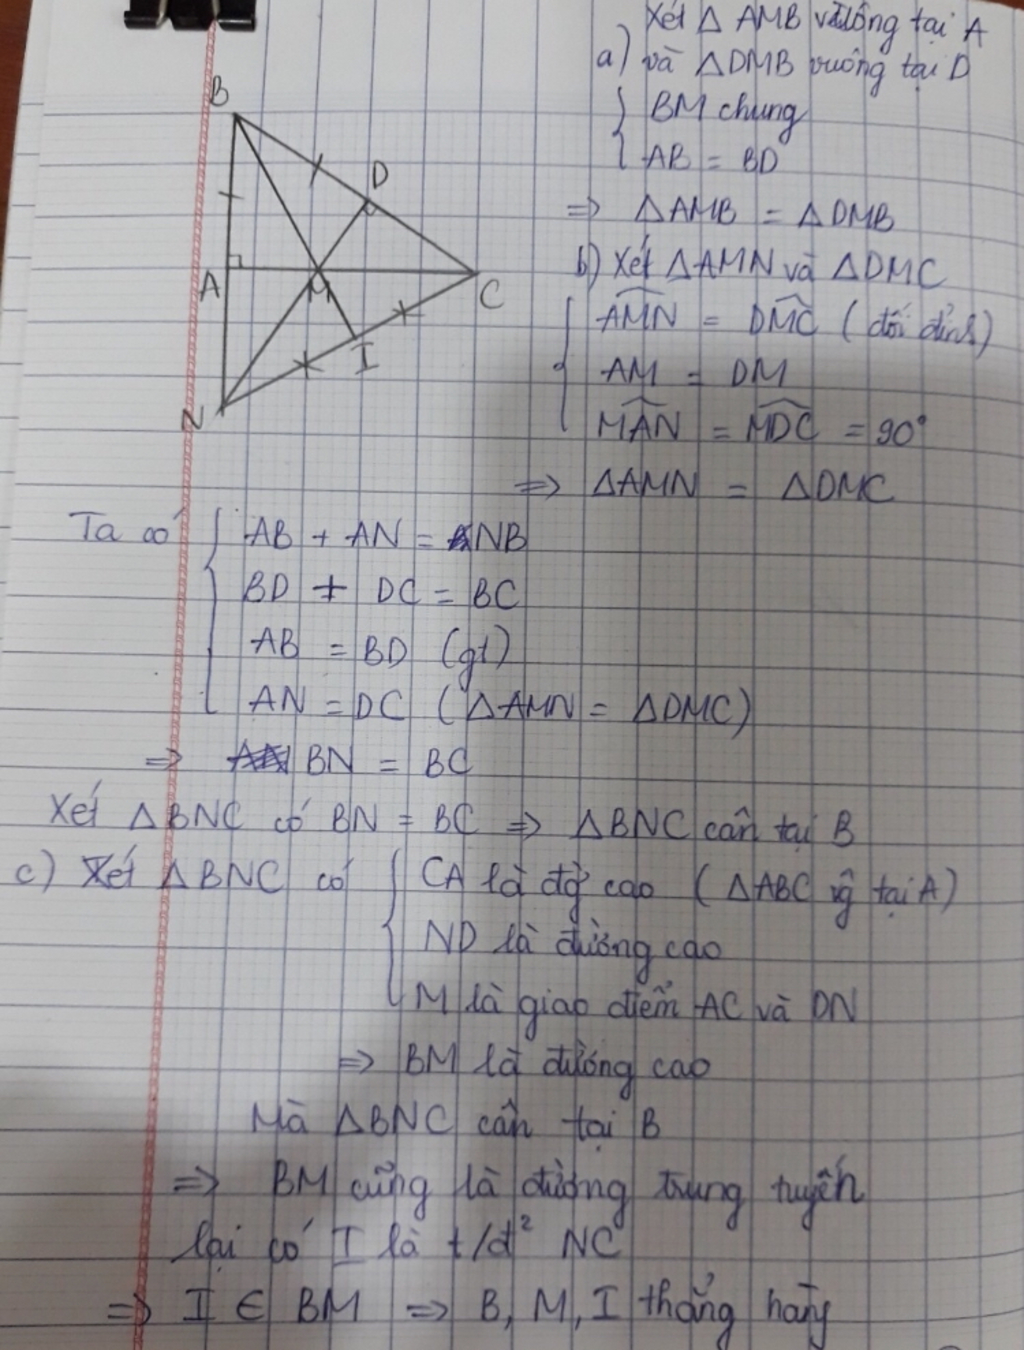 Xét △ AMB vuông tại A
a) và △DMB vuông tại D
BM chung
AB = BD
=> △AMB = △DMB
b) Xét △AMN và △DMC
AMN = DMC (đối đỉnh)
AM = DM
MAN = MDC = 90°
=> △AMN = △DMC
B
D
A
M
C
I
N
Ta có AB + AN = NB
BD + DC = BC
AB = BD (gt)
AN = DC (△AMN = △DMC)
=> BN = BC
Xét △BNC có BN = BC => △BNC cân tại B
c) Xét △BNC có CA là đg cao (△ABC vg tại A)
ND là đường cao
M là giao điểm AC và DN
=> BM là đường cao
Mà △BNC cân tại B
=> BM cũng là đường trung tuyến
lại có I là t/đ² NC
=> I ∈ BM => B, M, I thẳng hàng